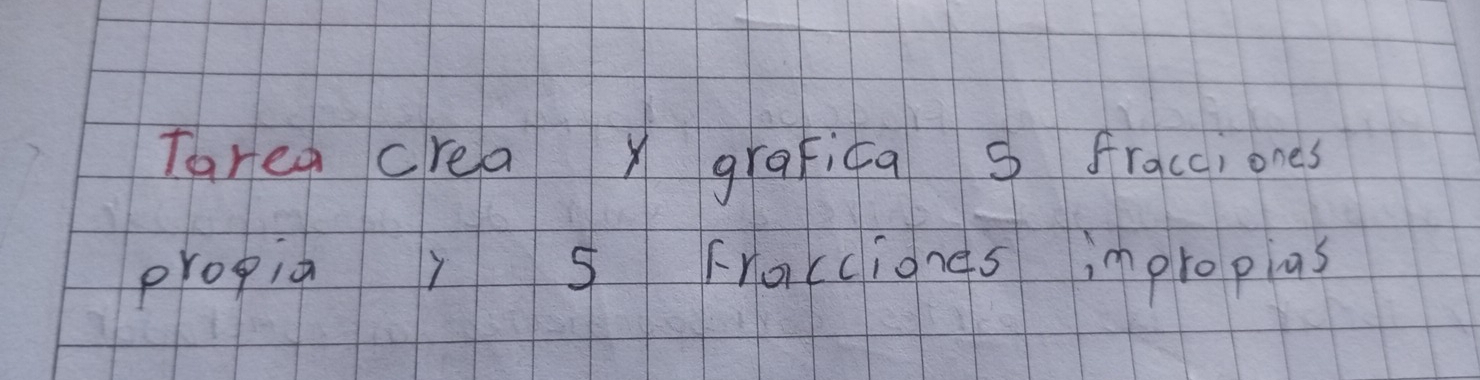 Tarea crea y grafica 5 fracciones
propia y 5 fracciones impropias